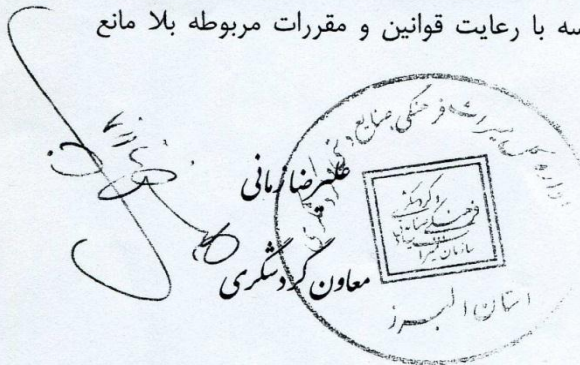 سه با رعایت قوانین و مقررات مربوطه بلا مانع
علیرضا زمانی
معاون گردشگری
اداره کل میراث فرهنگی صنایع دستی و گردشگری
استان البرز